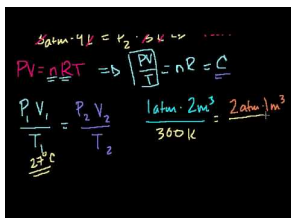 3atm·4L = P₂·3L
PV=nRT ⇒ PV/T = nR = C
P₁V₁/T₁ = P₂V₂/T₂
27°C
1atm·2m³/300K = 2atm·1m³